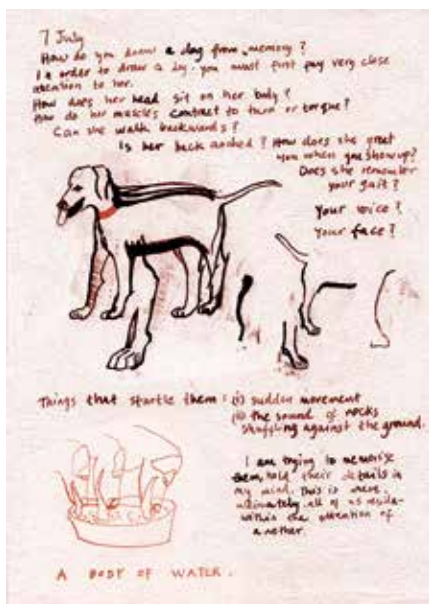 7 July
How do you draw a dog from memory?
In order to draw a dog. you must first pay very close
attention to her.
How does her head sit on her body?
How do her muscles contract to turn or torque?
Can she walk backwards?
Is her back arched? How does she greet
you when you show up?
Does she remember
your gait?
Your voice?
Your face?
Things that startle them: (i) sudden movement
(ii) the sound of rocks
shuffling against the ground.
I am trying to memorise
them, hold their details in
my mind. This is where,
ultimately, all of us reside-
within the attention of
another.
A BODY OF WATER.